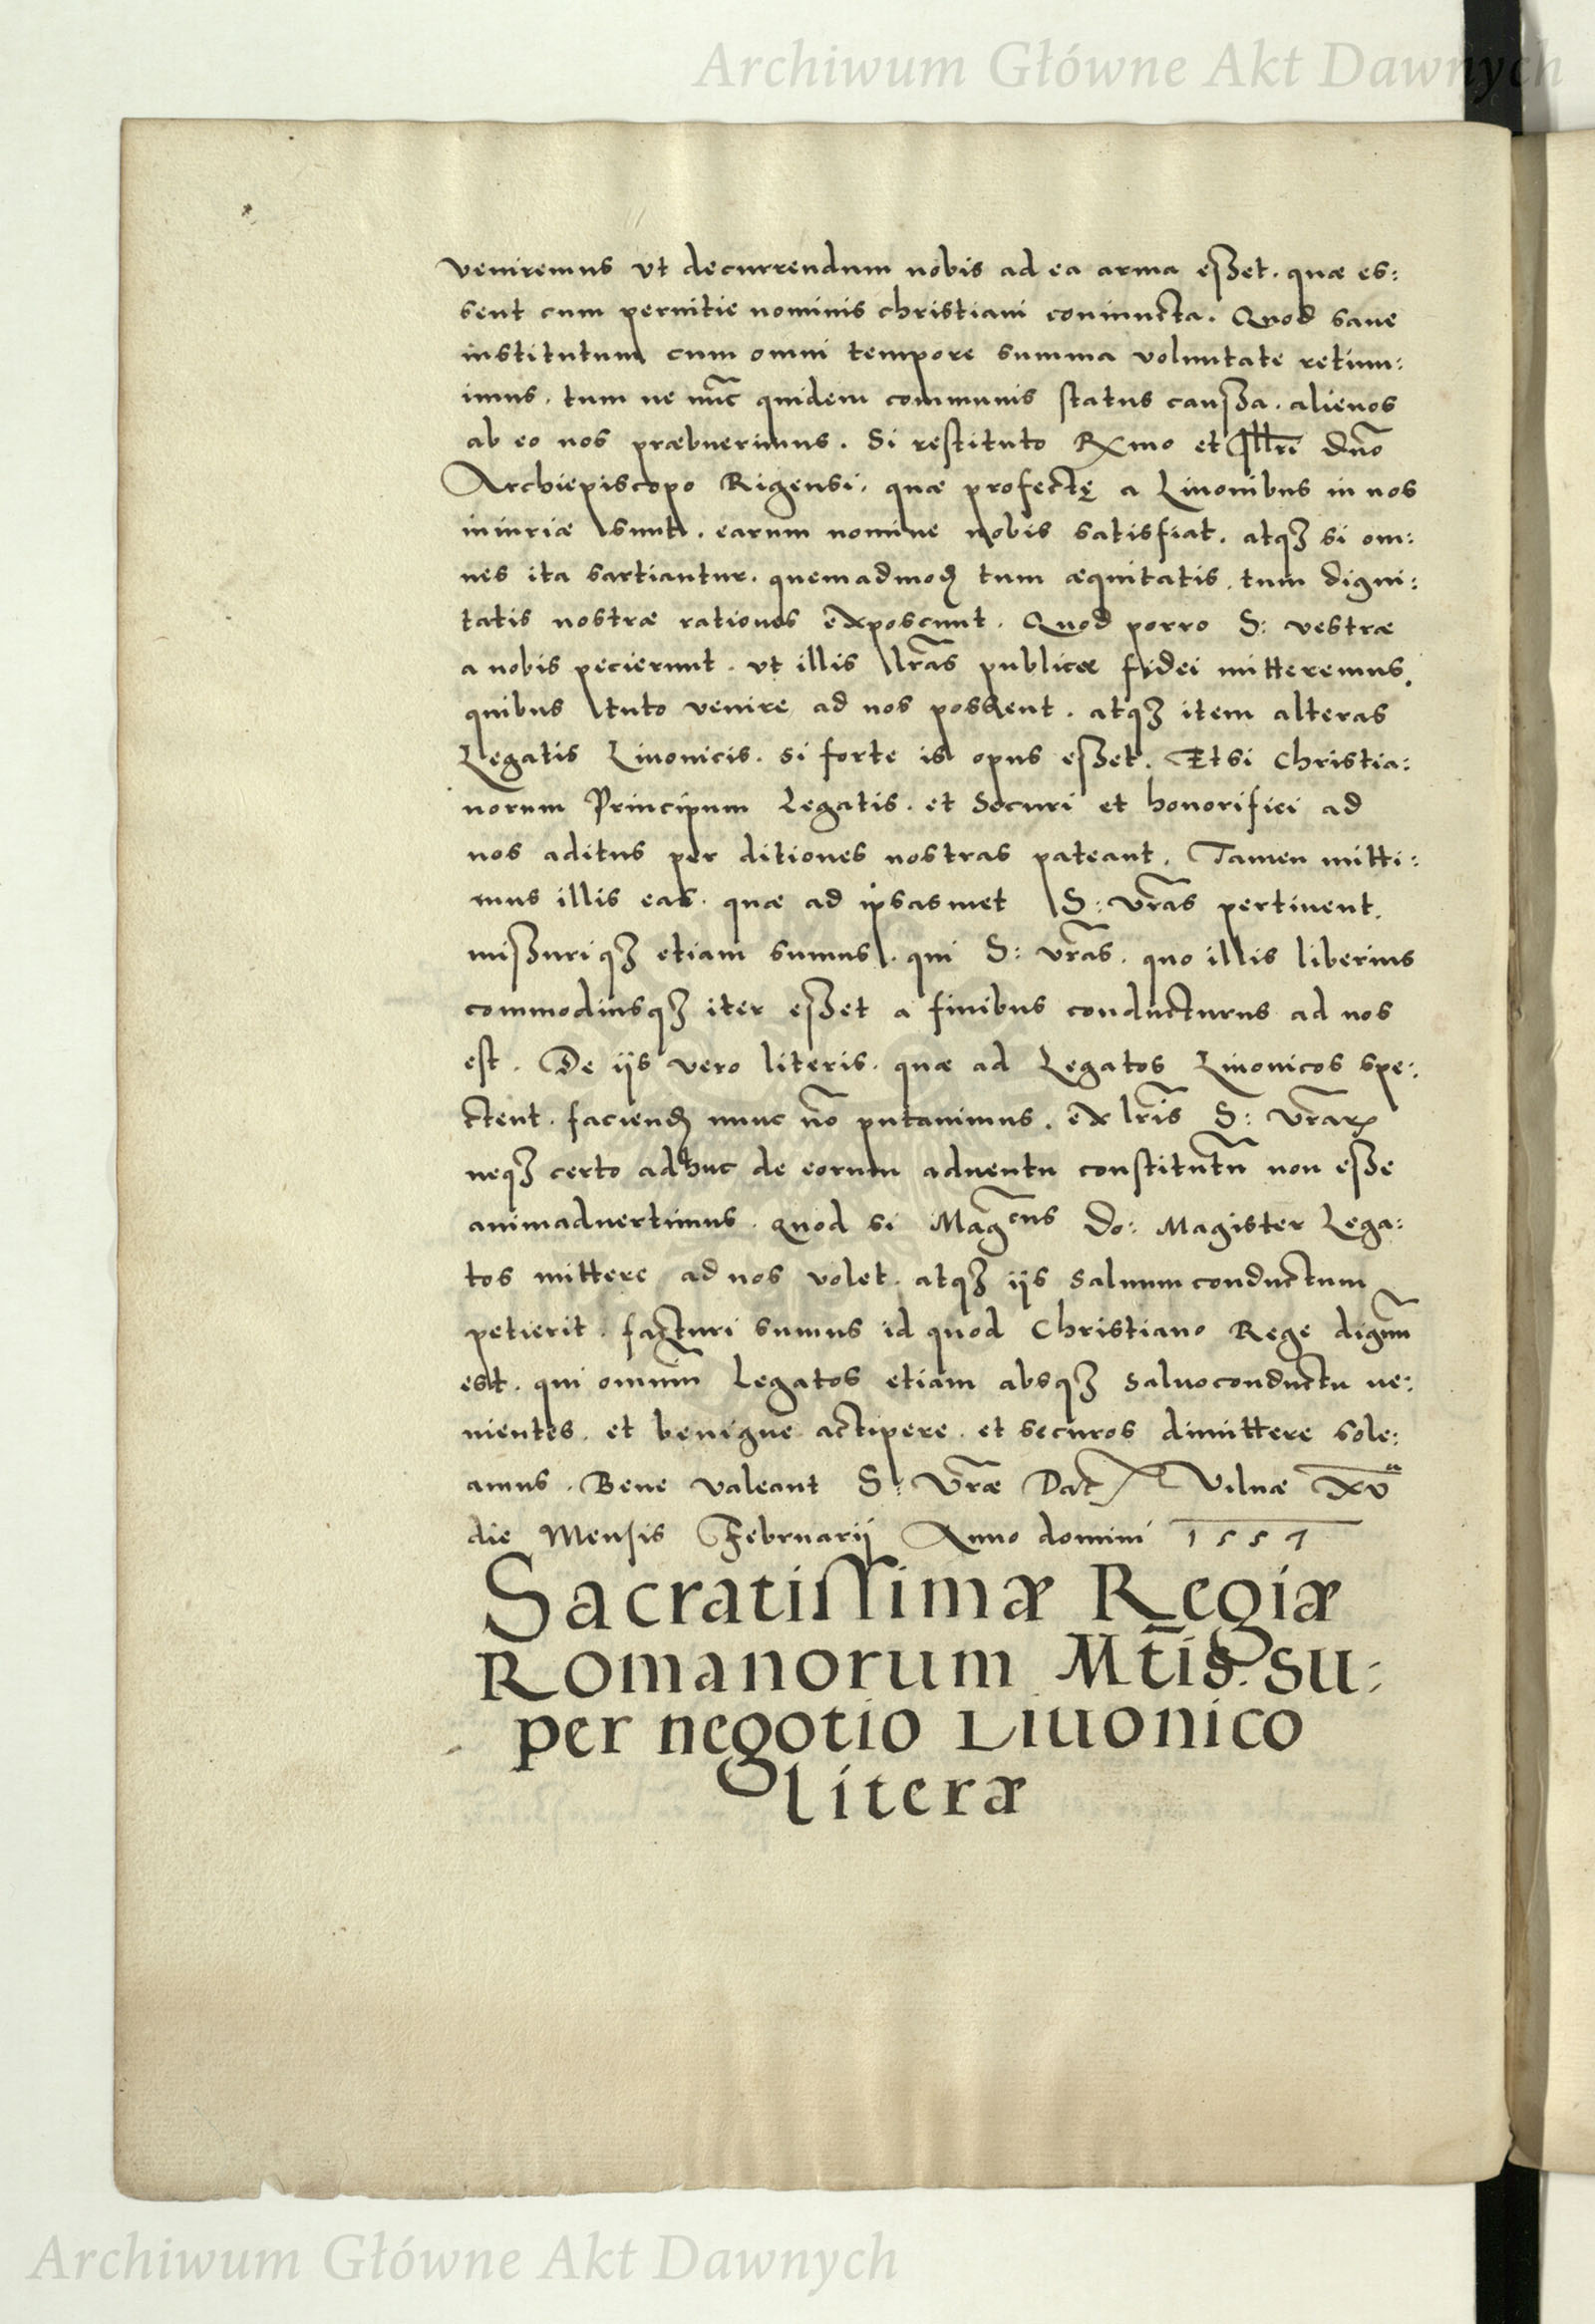 Archiwum Główne Akt Dawnych
veniremus vt decurrendum nobis ad ea arma eßet. quæ es:
sent cum pernitie nominis christiani coniuncta. Quod sane
institutum cum omni tempore summa voluntate retinu:
imus. tum ne nūc quidem communis status caußa. alienos
ab eo nos præbuerimus. Si restituto Rxmo et Illri dño
Archiepiscopo Rigensi. quæ profectę a Liuonibus in nos
iniuriæ sunt. earum nomine nobis satisfiat. atqꝫ si om:
nes ita sartiantur. quemadmoḍ tum æquitatis. tum digni:
tatis nostræ rationes exposcunt. Quod porro S: vestræ
a nobis pecierunt. vt illis lr̃as publicæ fidei mitteremus.
quibus tuto venire ad nos possent. atqꝫ item alteras
Legatis Liuonicis. si forte is opus eßet. Etsi Christia:
norum Principum Legatis. et securi et honorifici ad
nos aditus per ditiones nostras pateant. Tamen mitti:
mus illis eas. quæ ad ipsasmet S: vr̃as pertinent.
mißuriqꝫ etiam sumus. qui S: vr̃as. quo illis liberius
commodiusqꝫ iter eßet a finibus conducturus ad nos
est. De ijs vero literis. quæ ad Legatos Liuonicos spe:
ctent. facienḍ nunc nō putauimus. ex lr̃is S: vr̃aꝝ
neqꝫ certo adhuc de eorum aduentu constitutū non eße
animaduertimus. quod si Mag͠cus Do: Magister Lega:
tos mittere ad nos volet. atqꝫ ijs saluum conductum
petierit. facturi sumus id quod Christiano Rege dignū
est. qui omniū Legatos etiam absqꝫ saluoconductu ue:
nientes. et benigne actipere. et securos dimittere sole:
amus. Bene valeant S: Vr̃æ Dat Vilnæ xv^a
die Mensis Februarij Anno domini 1557
Sacratissimæ Regiæ
Romanorum Mt̄is. su:
per negotio Liuonico
literæ
Archiwum Główne Akt Dawnych